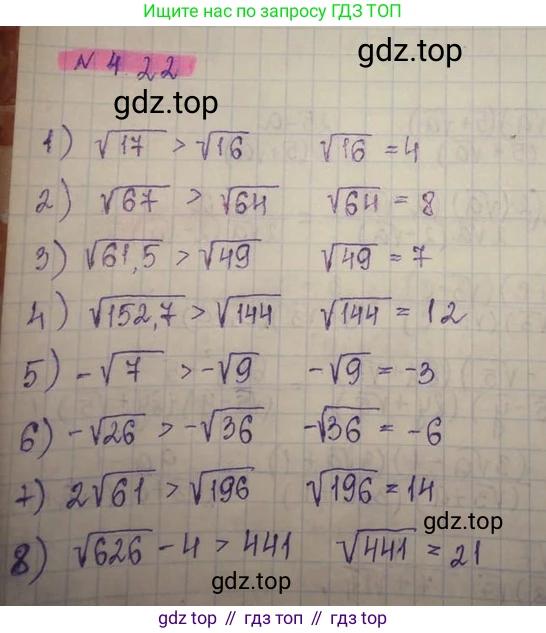 Ищите нас по запросу ГДЗ ТОП
№ 422
gdz.top
gdz.top
1) √17 > √16 √16 = 4
2) √67 > √64 √64 = 8
3) √61,5 > √49 √49 = 7
4) √152,7 > √144 √144 = 12
5) -√7 > -√9 -√9 = -3
6) -√26 > -√36 -√36 = -6
7) 2√61 > √196 √196 = 14
gdz.top
8) √626 - 4 > 441 √441 = 21
gdz.top
gdz.top // гдз топ // gdz.top